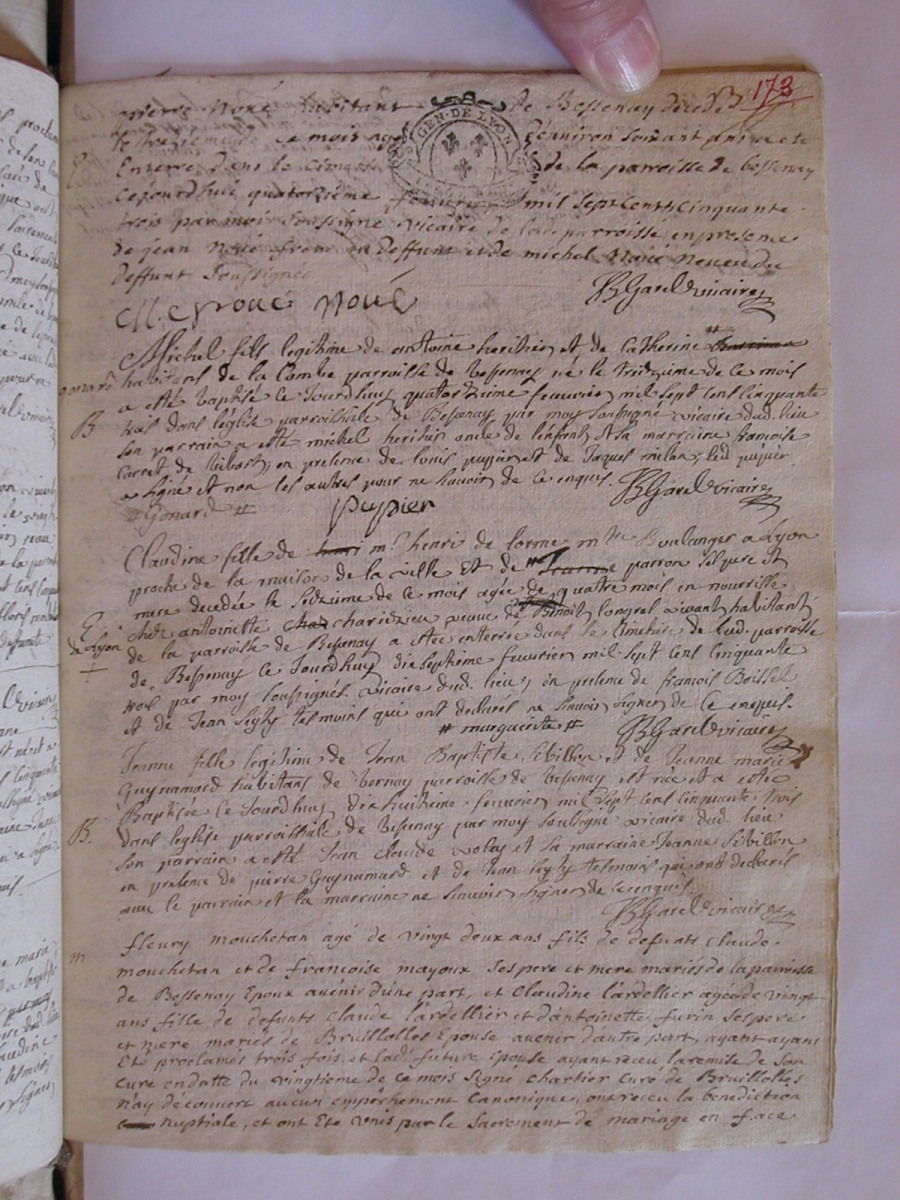 173
pierre Noué habitant de Bessenay décédé
le treizieme de ce mois agé d'environ soixant ans a ete
Enterré dans le cimetiere de la parroisse de Bessenay
GEN. DE LYON
cejourdhui quatorzième feuvrier mil sept cents cinquante
trois par moi soussigné vicaire de la parroisse en presence
de jean Noué frère du deffunt et de michel Noué neveu du
deffunt soussignés
BGarel vicaire
M. Noué Noué
Michel fils legitime de antoine heritier et de Catherine #
habitans de la Combe parroisse de Bessenay né le treizieme de ce mois
a esté baptisé ce Jourdhuy quatorzieme feuvrier mil sept cent cinquante
B
trois dans l'église parroissiale de Bessenay par moy soussigné vicaire dud. lieu
son parrain a esté michel heritier oncle de l'enfant et la marraine françoise
Carret de Ribost, en presence de louis pupier et de Jaques milan, led pupier
a signé et non les autres pour ne sçavoir de ce enquis. BGarel vicaire
# Gonard # pupier
Claudine fille de mr. henri de lorme mtre Boulanger a Lyon
proche de la maison de la ville et de # parron ses pere et
mere decedée le seizieme de ce mois agée de quatre mois en nourrisse
chez antoinette charizieu veuve de Benoit longrel vivant habitant
E
de Lyon
de la parroisse de Bessenay a étée enterrée dans le Cimetiere de lad. parroisse
de Bessenay ce Jourdhuy dix septieme feuvrier mil sept cent cinquante
trois par moy soussigné vicaire dud. lieu, en presence de françois Boissel
et de Jean tesmoins qui ont declaré ne sçavoir signer de ce enquis.
# marguerite # BGarel vicaire
Jeanne fille legitime de Jean Baptiste Sibillon et de Jeanne marie
Guynamard habitans de Vernay parroisse de Bessenay est née et a estée
Baptisée ce Jourdhuy dix huitieme feuvrier mil sept cent cinquante trois
B.
dans leglise parroissiale de Bessenay par moy soussigné vicaire dud. lieu
son parrain a esté Jean Claude volay et sa marraine Jeanne Sibillon
en presence de pierre Guynamard et de Jean tesmoins qui ont declaré
avec le parrain et la marraine ne sçavoir signer de ce enquis.
BGarel vicaire
m
fleury mouchetan agé de vingt deux ans fils de defunts Claude
mouchetan et de françoise mayoux ses pere et mere mariés de la parroisse
de Bessenay Epoux avenir d'une part, et Claudine lardellier agée de vingt
ans fille de defunts Claude lardellier et d'antoinette furin ses pere
et mere mariés de Brullioles Epouse avenir d'autre part, ayant ayans
Eté proclamés trois fois, et lad. future Epouse ayant receu la remise de son
Curé en datte du vingtieme de ce mois signé chartier Curé de Brullioles
n'ay découvert aucun empêchement Canonique, ont receu la benediction
nuptiale, et ont Eté unis par le Sacrement de mariage en face